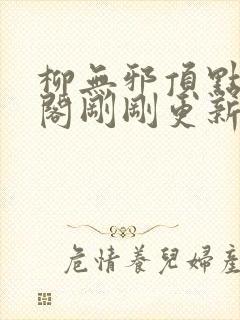 柳無邪頂點
閣剛剛更新
危情養兒婦產